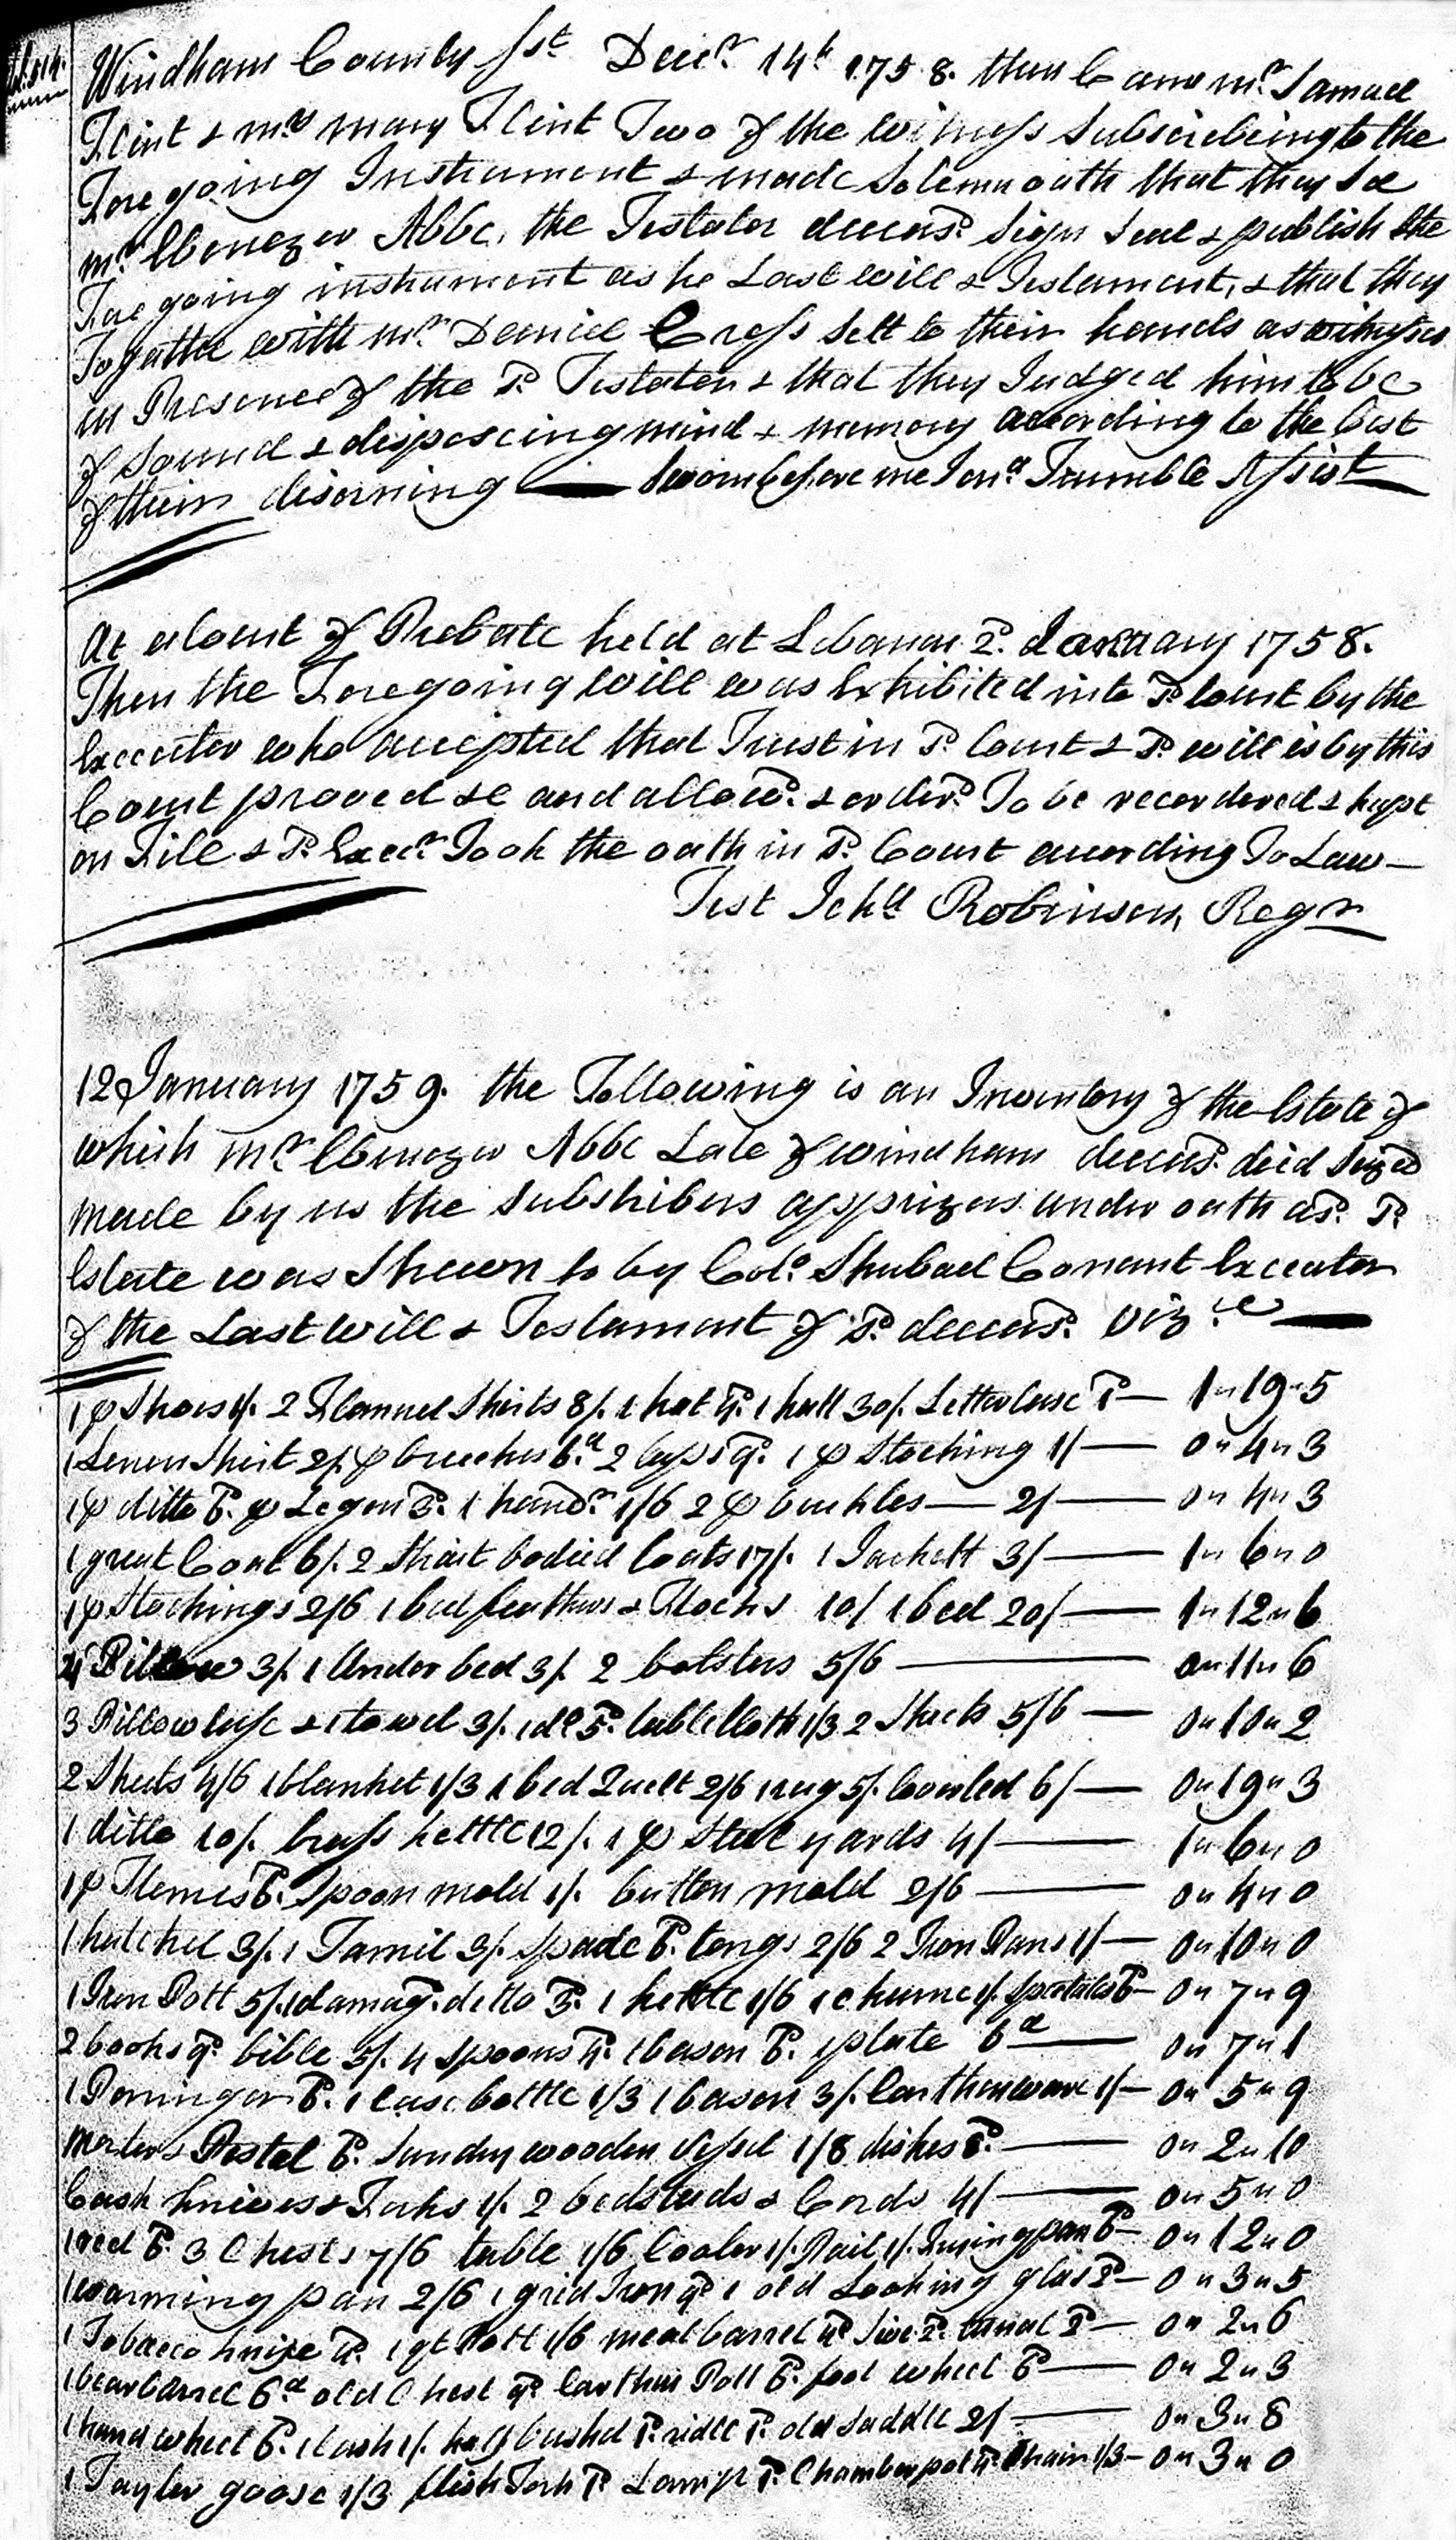 Windham County sst Decr 14th 1758. then Came mr Samuel
Flint & mrs mary Flint Two of the witness Subscribeing to the
Foregoing Instrument & made Solemn oath that they Se
mr Ebenezer Abbe, the Testator deceasd. Sign Seal & publish the
Foregoing instrument as he Last will & Testament, & that they
Togather with mr Daniel Cross Sett to their hands as witnesses
in Presence of the sd. Testator & that they Judged him to be
of Sound & disposeing mind & memory according to the best
of their discerning — Sworn before me Jona Trumble Assist
At a Court of Probate held at Lebanon 2d. January 1758.
Then the Foregoing will was Exhibited into sd Court by the
Executor who accepted that Trust in sd. Court & sd. will is by this
Court proved &c and allowd. & orderd. To be recordered & kept
on File & sd. Execr. Took the oath in sd. Court according To Law—
Test Ichd Robinson, Regr
12 January 1759. the Following is an Inventory of the Estate of
which mr Ebenezer Abbe Late of windham deceasd. died Seized
made by us the Subshibers apprizers under oath as sd.
Estate was Shewn to by Colo. Shubael Conant Executor
of the Last will & Testament of sd. deceasd. Viz
1 p Shoes 1/. 2 Flannel Shirts 8/. 1 hat 4d. 1 hatt 30/. Letter Case 1d— 1"19"5
1 Lenen Shirt 2/. p breeches 6d. 2 caps 9d. 1 p Stocking 1/— 0"4"3
1 p ditto 6d. p Legons 3d. 1 hand. 1/6 2 p buckles— 2/— 0"4"3
1 great Coat 6/. 2 Strait bodied Coats 17/. 1 Jackett 3/— 1"6"0
1 p Stockings 2/6 1 bed feathers & Flocks 10/ 1 bed 20/— 1"12"6
4 Pillow 3/. 1 Under bed 3/. 2 bolsters 5/6 — 0"11"6
3 Pillow case & 1 towel 3/. 1 do 5d. table Cloth 1/3 2 Sheets 5/6 — 0"10"2
2 Sheets 4/6 1 blanket 1/3 1 bed Quilt 2/6 1 rug 5/. Coverled 6/— 0"19"3
1 ditto 10/. brass kettle 12/. 1 p Steel yards 4/— 1"6"0
1 p Flemes 6d. Spoon mold 1/. button mold 2/6 — 0"4"0
1 hatchel 3/. 1 Tamil 3/. Spade 6d. tongs 2/6 2 Iron Pans 1/— 0"10"0
1 Iron Pott 5/. 1 damagd. ditto 3d. 1 kettle 1/6 1 churne 1/. Spectales 6d— 0"7"9
2 books 9d. bible 5/. 4 Spoons 4d. 1 bason 6d. 1 plate 6d— 0"7"1
1 Poringer 6d. 1 Case bottle 1/3 1 bason 3/. Earthenware 1/— 0"5"9
morter & Pestel 6d. Sundry wooden Vessel 1/8 dishes 8d.— 0"2"10
Cash knives & Forks 1/. 2 bedsteeds & Cords 4/— 0"5"0
1 reel 6d. 3 Chests 7/6 table 1/6 Cooler 1/. Pail 1/. Frying pan 6d— 0"12"0
1 warming pan 2/6 1 grid Iron 9d 1 old Looking glas 2d— 0"3"5
1 Tobacco knife 4d. 1 qt Pott 1/6 meal barrel 4d Sive 2d. 2d— 0"2"6
1 bear barrel 6d old Chest 9d. Earthen Pott 6d. foot wheel 6d— 0"2"3
1 hand wheel 6d. 1 Cask 1/. half bushel 1d. ridle 1d. old Saddle 2/— 0"3"8
1 Taylor goose 1/3 flesh Fork 1d Lamp 1d. Chamber pot 4d. Chain 1/3— 0"3"0